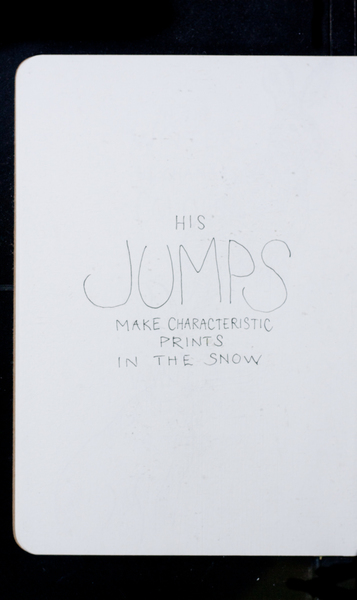 HIS
JUMPS
MAKE CHARACTERISTIC
PRINTS
IN THE SNOW